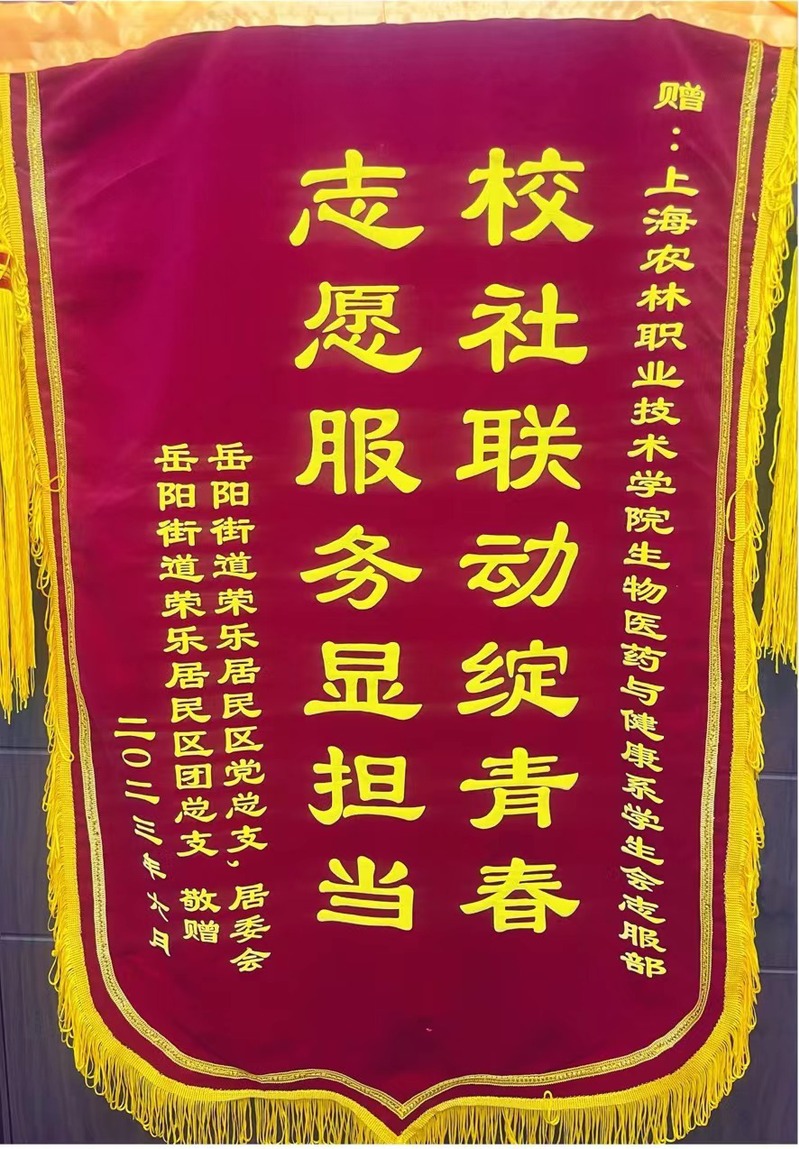 赠：上海农林职业技术学院生物医药与健康系学生会志服部
校社联动绽青春
志愿服务显担当
岳阳街道荣乐居民区党总支、居委会
岳阳街道荣乐居民区团总支 敬赠
二〇二三年六月